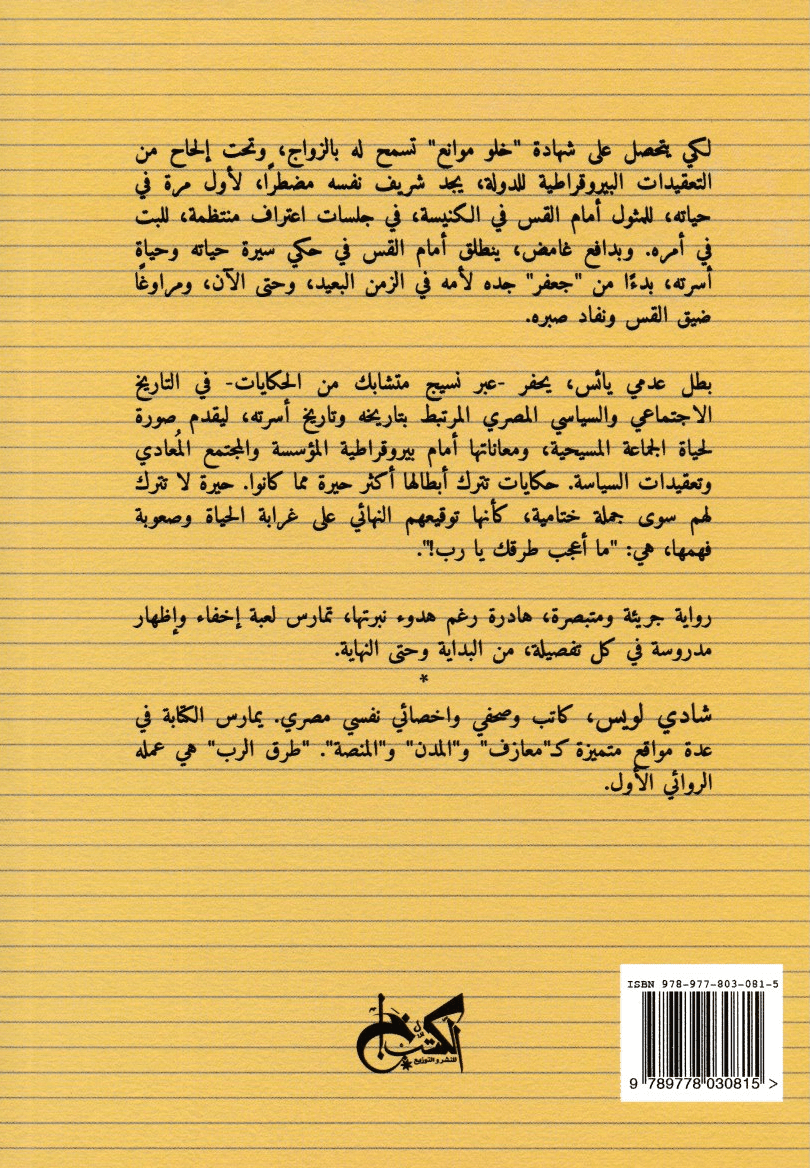 لكي يتحصل على شهادة "خلو موانع" تسمح له بالزواج، وتحت إلحاح من
التعقيدات البيروقراطية للدولة، يجد شريف نفسه مضطرًا، لأول مرة في
حياته، للمثول أمام القس في الكنيسة، في جلسات اعتراف منتظمة، للبت
في أمره. وبدافع غامض، ينطلق أمام القس في حكي سيرة حياته وحياة
أسرته، بدءًا من "جعفر" جده لأمه في الزمن البعيد، وحتى الآن، ومراوغًا
ضيق القس ونفاد صبره.
بطل عدمي يائس، يحفر -عبر نسيج متشابك من الحكايات- في التاريخ
الاجتماعي والسياسي المصري المرتبط بتاريخه وتاريخ أسرته، ليقدم صورة
لحياة الجماعة المسيحية، ومعاناتها أمام بيروقراطية المؤسسة والمجتمع المُعادي
وتعقيدات السياسة. حكايات تترك أبطالها أكثر حيرة مما كانوا. حيرة لا تترك
لهم سوى جملة ختامية، كأنها توقيعهم النهائي على غرابة الحياة وصعوبة
فهمها، هي: "ما أعجب طرقك يا رب!".
رواية جريئة ومتبصرة، هادرة رغم هدوء نبرتها، تمارس لعبة إخفاء وإظهار
مدروسة في كل تفصيلة، من البداية وحتى النهاية.
*
شادي لويس، كاتب وصحفي واخصائي نفسي مصري. يمارس الكتابة في
عدة مواقع متميزة كـ"معازف" و"المدن" و"المنصة". "طرق الرب" هي عمله
الروائي الأول.
الكتب خان
للنشر والتوزيع
ISBN 978-977-803-081-5
9 789778 030815 >